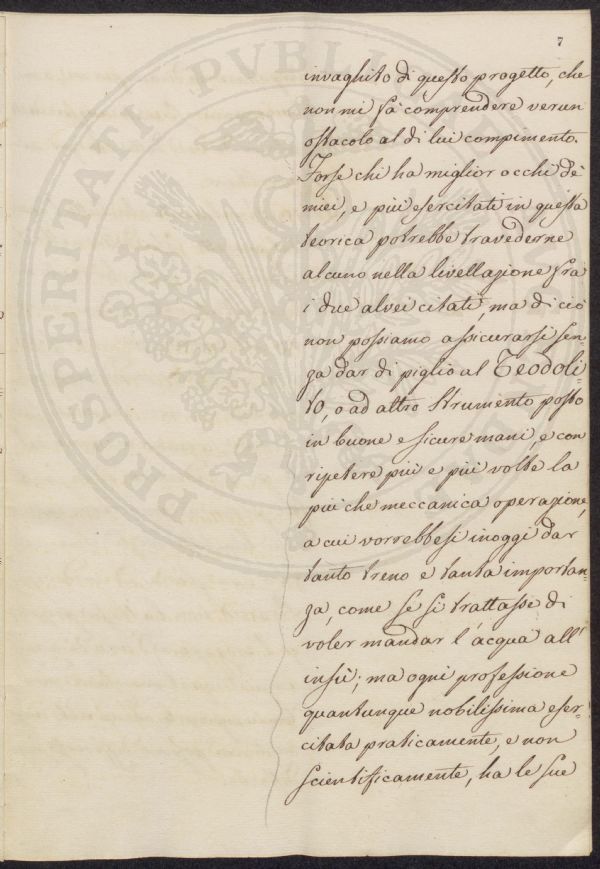 7
invaghito di questo progetto, che
non mi fà comprendere verun
ostacolo al di lui compimento.
Forse chi ha miglior occhi dè
miei, e più esercitati in questa
teorica potrebbe travederne
alcuno nella livellazione frà
i due alvei citati, ma di ciò
non possiamo assicurarsi sen-
za dar di piglio al Teodoli-
to, o ad altro Strumento posto
in buone e sicure mani, e con
ripetere più e più volte la
più che meccanica operazione,
a cui vorrebbesi inoggi dar
tanto treno e tanta importan-
za, come se si trattasse di
voler mandar l'acqua all'
insù; ma ogni professione
quantunque nobilissima eser-
citata praticamente, e non
scientificamente, ha le sue
PROSPERITATI PVBLIC